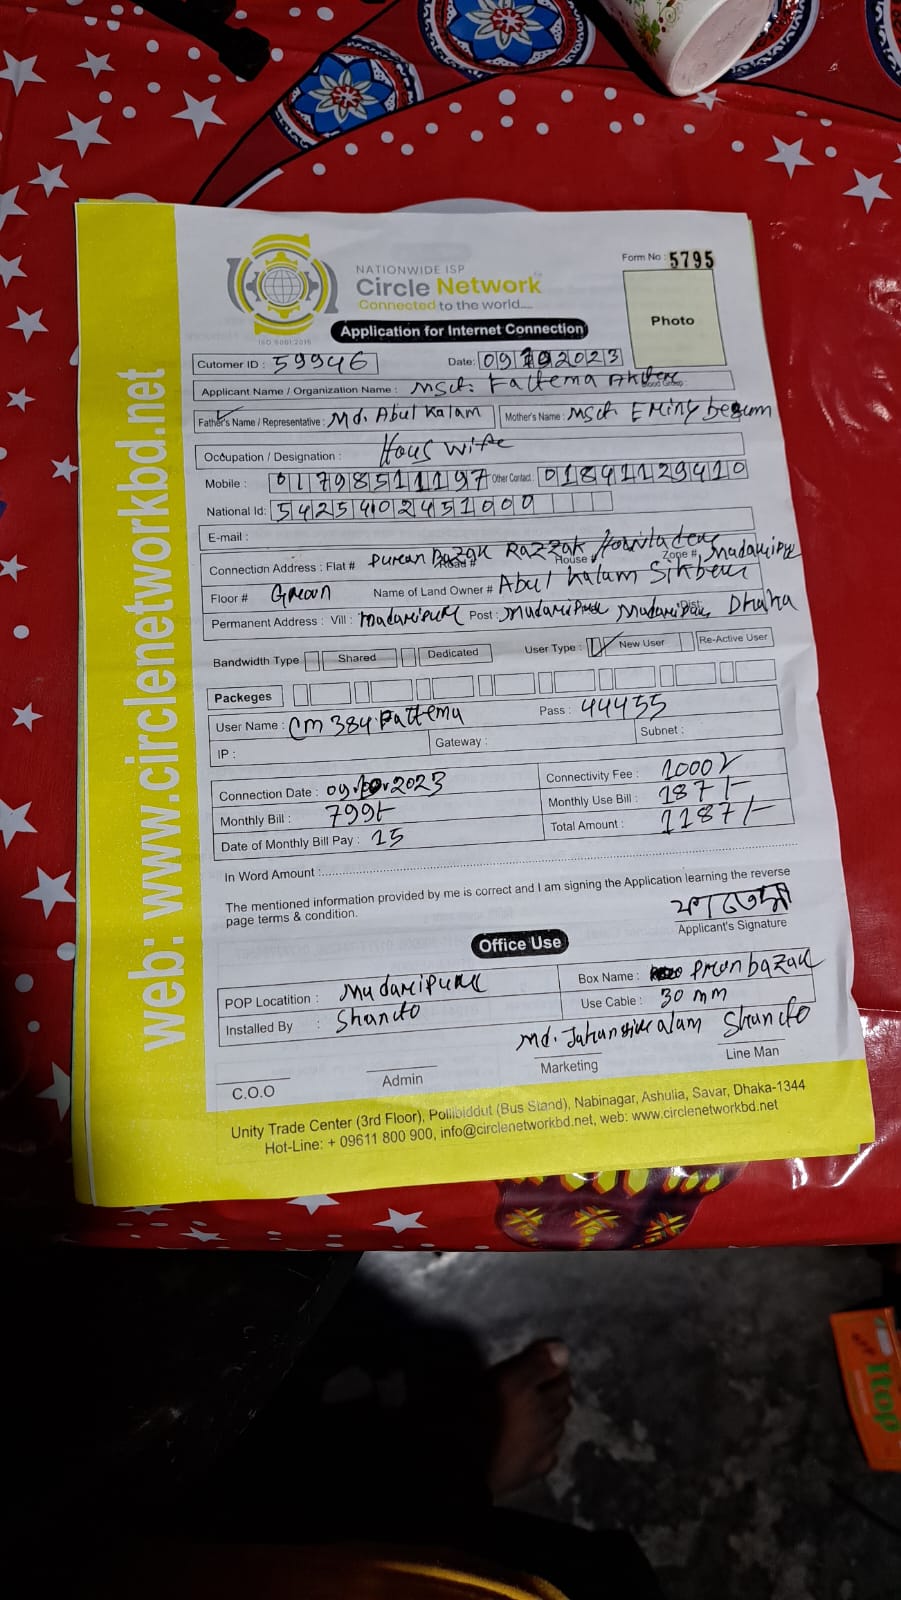 web: www.circlenetworkbd.net
NATIONWIDE ISP
Circle Network
Connected to the world....
ISO 9001:2015
Form No : 5795
Photo
Application for Internet Connection
Cutomer ID : 59946 Date: 09102023
Applicant Name / Organization Name : Mst. Fattema Akter
Father's Name / Representative : Md. Abul Kalam Mother's Name : Mst Eminy begum
Occupation / Designation : Hous wife
Mobile : 01798511197 Other Contact : 01841129410
National Id: 5425402451000
E-mail :
Connection Address : Flat # Puran Bazar Razzak House # Zone # Madaripur
Floor # Groun Name of Land Owner # Abul Kalam
Permanent Address : Vill : Madaripur Post : Madaripur Madaripur Dist: Dhaka
Bandwidth Type Shared Dedicated User Type : New User Re-Active User
Packeges
User Name : Cm384.Fattema Pass : 44455
IP : Gateway : Subnet :
Connection Date : 09.10.2023 Connectivity Fee : 1000/-
Monthly Bill : 799/- Monthly Use Bill : 187/-
Date of Monthly Bill Pay : 15 Total Amount : 1187/-
In Word Amount :
The mentioned information provided by me is correct and I am signing the Application learning the reverse
page terms & condition.
ফাতেমা
Applicant's Signature
Office Use
POP Locatition : Madaripur Box Name : Puranbazar
Installed By : Shanto Use Cable : 30 mm
Md. Jahangir alam Shanto
C.O.O Admin Marketing Line Man
Unity Trade Center (3rd Floor), Pollibiddut (Bus Stand), Nabinagar, Ashulia, Savar, Dhaka-1344
Hot-Line: + 09611 800 900, info@circlenetworkbd.net, web: www.circlenetworkbd.net